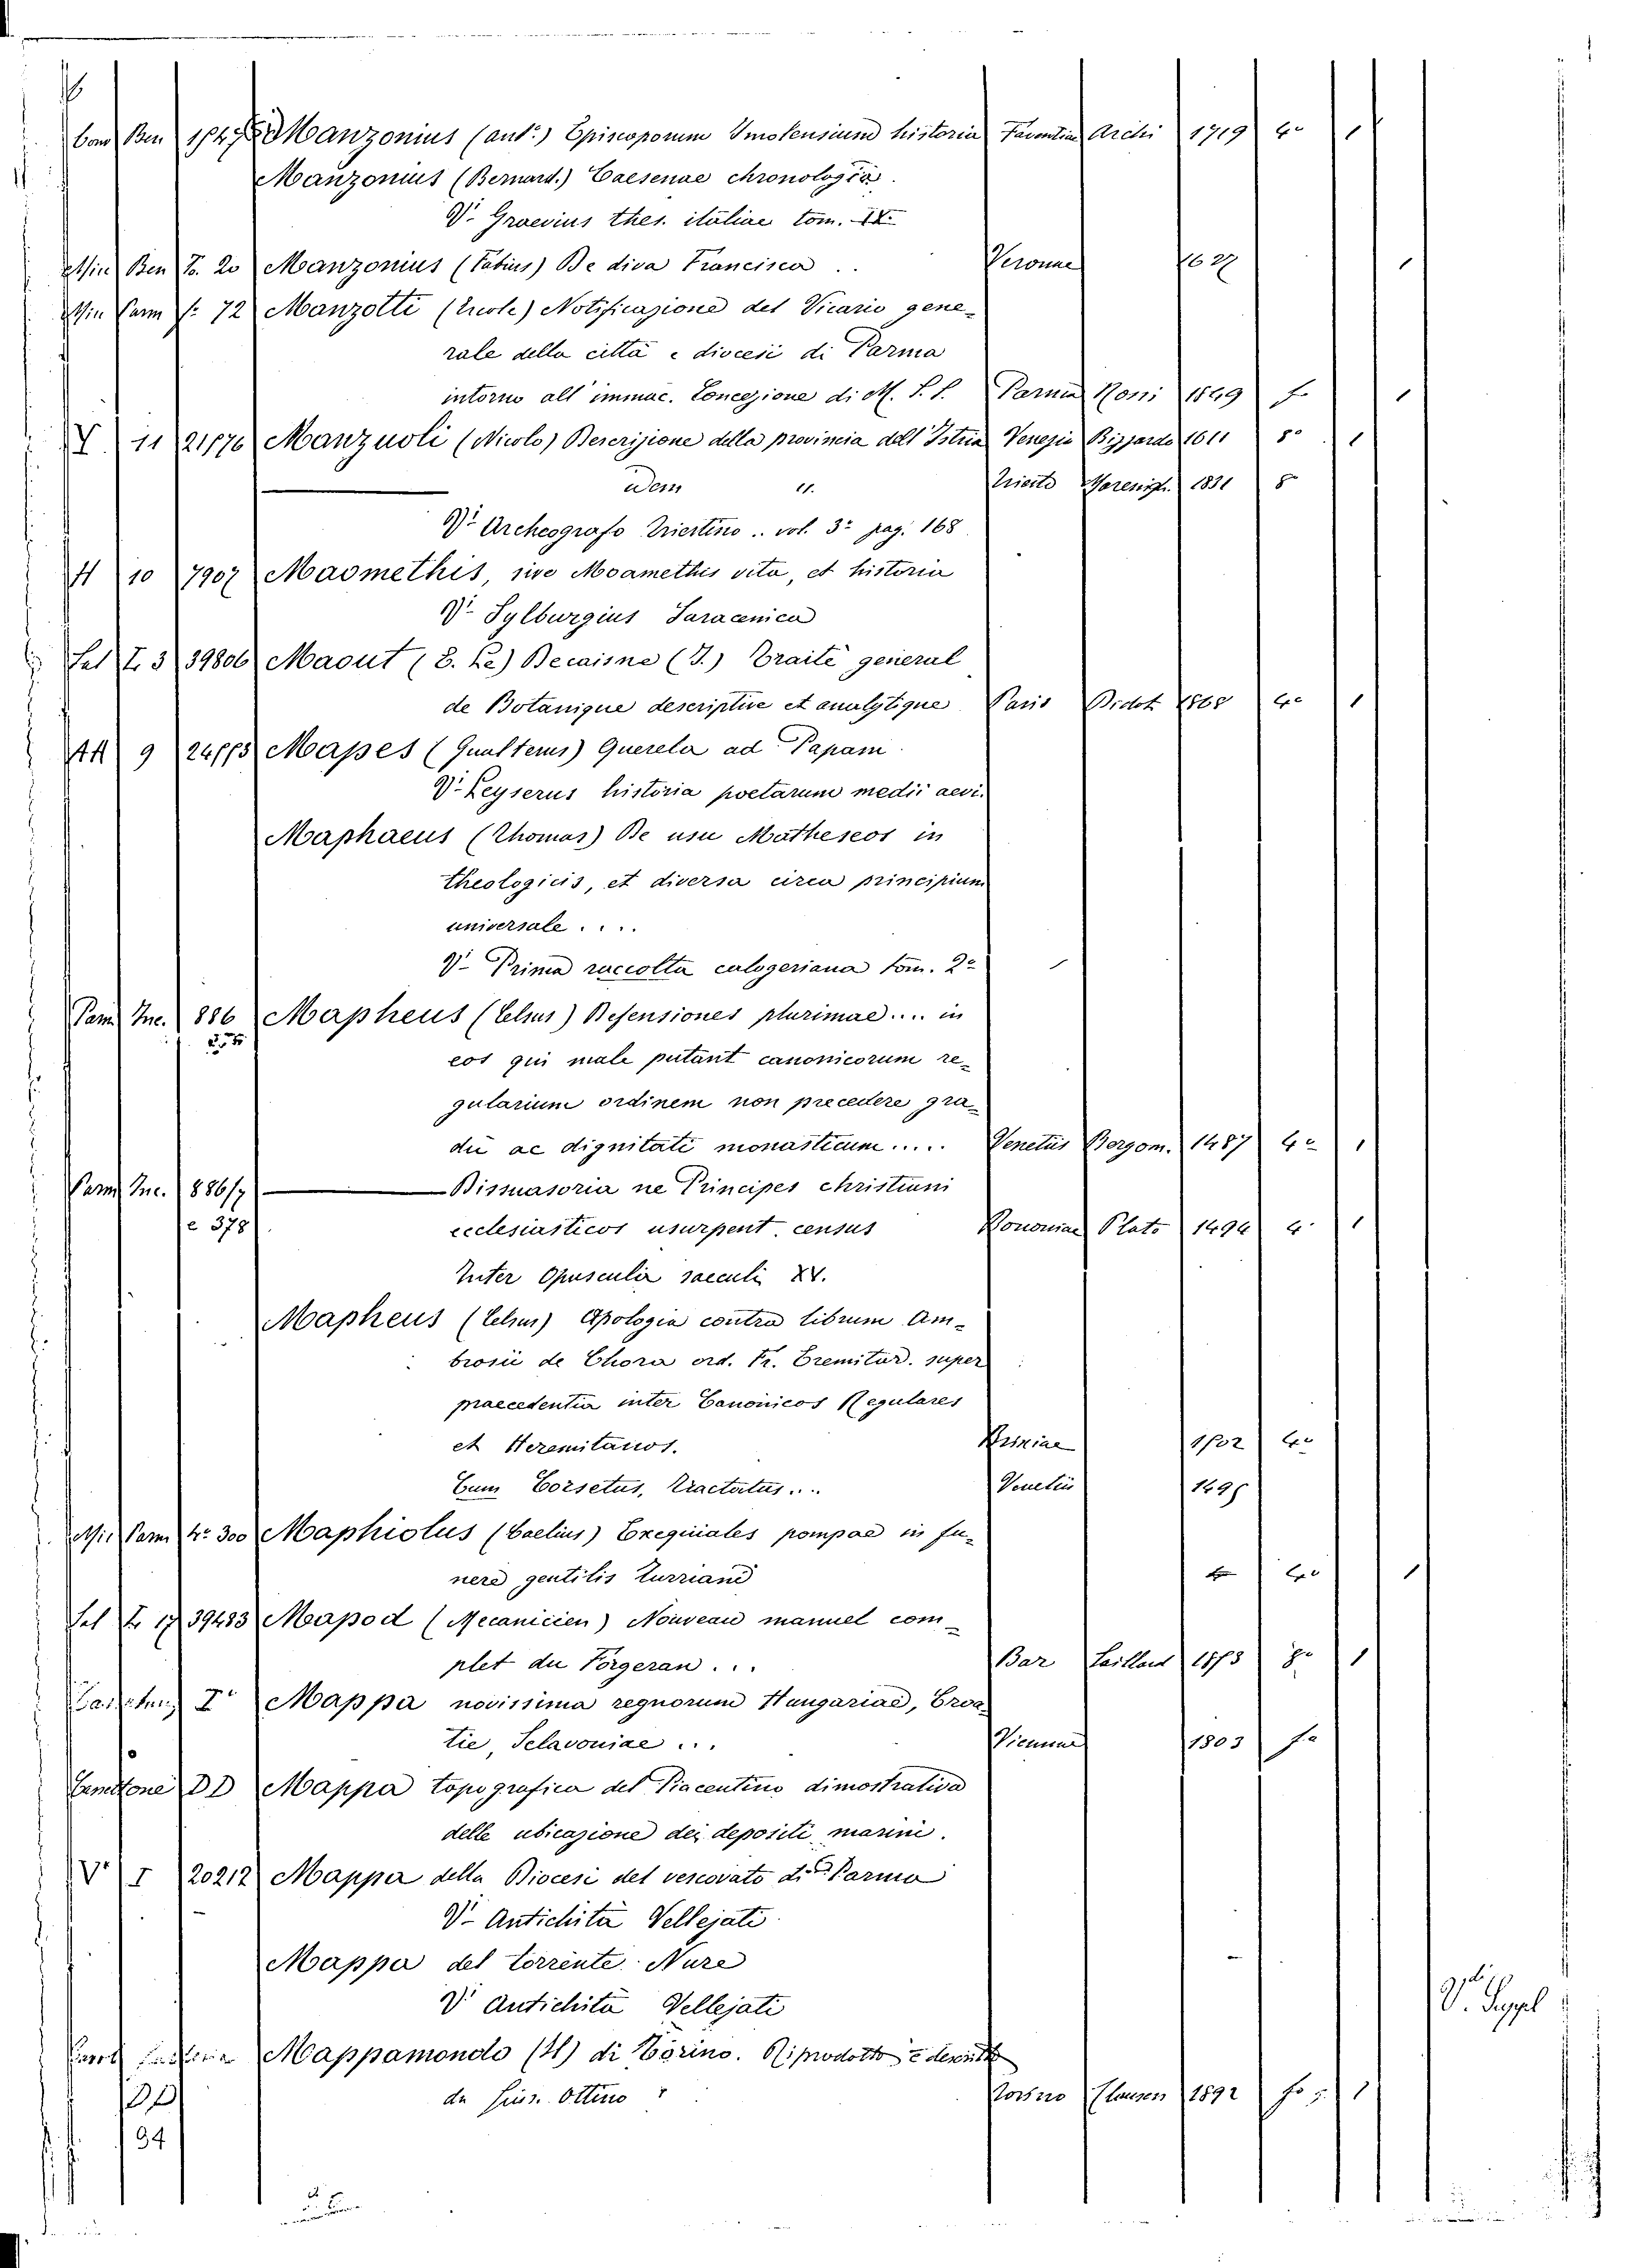 Manzonius (ant:) Episcoporum Imolensium historia Faventiae Archi 1719 4º 1
Manzonius (Bernard.) Caesenae chronologia.
V. Graevius thes. italiae tom. IX
Min Ben T. 20 Manzonius (Fabius) De diva Francisca .. Veronae 1627 1
Min Parm f: 72 Manzotti (Ercole) Notificazione del Vicario gene-
rale della città e diocesi di Parma
intorno all' immac. Concezione di M. S.S. Parma Rossi 1849 f. 1
11 21876 Manzuoli (Nicolo) Descrizione della provincia dell' Istria Venezia Bizzardo 1611 8º 1
idem Trieste Marenigh. 1831 8º
V. Archeografo Triestino .. vol. 3º pag. 168
10 7907 Maomethis, sive Moamethis vita, et historia
V. Sylburgius Saracenica
Sal I. 3 39806 Maout (E. Le) Decaisne (J.) Traité general
de Botanique descriptive et analytique Paris Didot 1868 4º 1
9 Mapes (Gualterus) Querela ad Papam
V. Leyserus historia poetarum medii aevi.
Maphaeus (Thomas) De usu Matheseos in
theologicis, et diversa circa principium
universale ....
V. Prima raccolta calogeriana tom. 2º
Parm Inc. 886 Mapheus (Celsus) Defensiones plurimae .... in
eos qui male putant canonicorum re-
gularium ordinem non precedere gra-
du ac dignitate monasticum ..... Venetiis Bergom. 1487 4º 1
Parm Inc. 886/7 Dissuasoria ne Principes christiani
e 378 ecclesiasticos usurpent census Bononiae Plato 1494 4º 1
Inter Opuscula saeculi XV.
Mapheus (Celsus) Apologia contra librum Am-
brosii de Chora ord. Fr. Eremitar. super
praecedentia inter Canonicos Regulares
et Heremitanos. Brixiae 1502 4º
Cum Corsetus, Tractatus ... Venetiis
Mis Parm 4º 300 Maphiolus (Caelius) Exequiales pompae in fu-
nere gentilis Turriani 4º 1
Sal 17 39483 Mapod (Mecanicien) Nouveau manuel com-
plet du Forgeran ... Bar Laillard 8º 1
I. Mappa novissima regnorum Hungariae, Croa-
tie, Sclavoniae ... Viennae 1803 fº
DD Mappa topografica del Piacentino dimostrativa
delle ubicazione dei depositi marini.
V I 20212 Mappa della Diocesi del vescovato di Parma
V. Antichità Vellejati
Mappa del torrente Nure
V. Antichità Vellejati
V. Suppl
Mappamondo (Il) di Torino. Riprodotto e descritto
da Gius. Ottino Torino Clausen 1892 fº 1
94